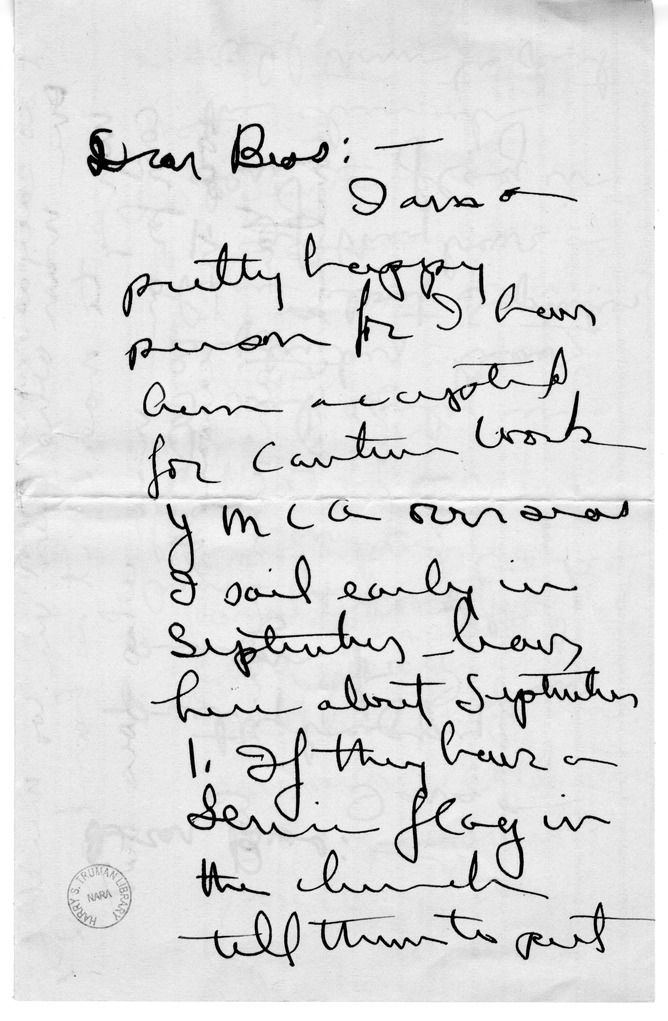 Dear Bess: —
I am a
pretty happy
person for I have
been accepted
for Canteen work
Y M C A overseas
I sail early in
September – leave
here about September
1. If they have a
Service flag in
the church
tell them to put
HARRY S. TRUMAN LIBRARY
NARA